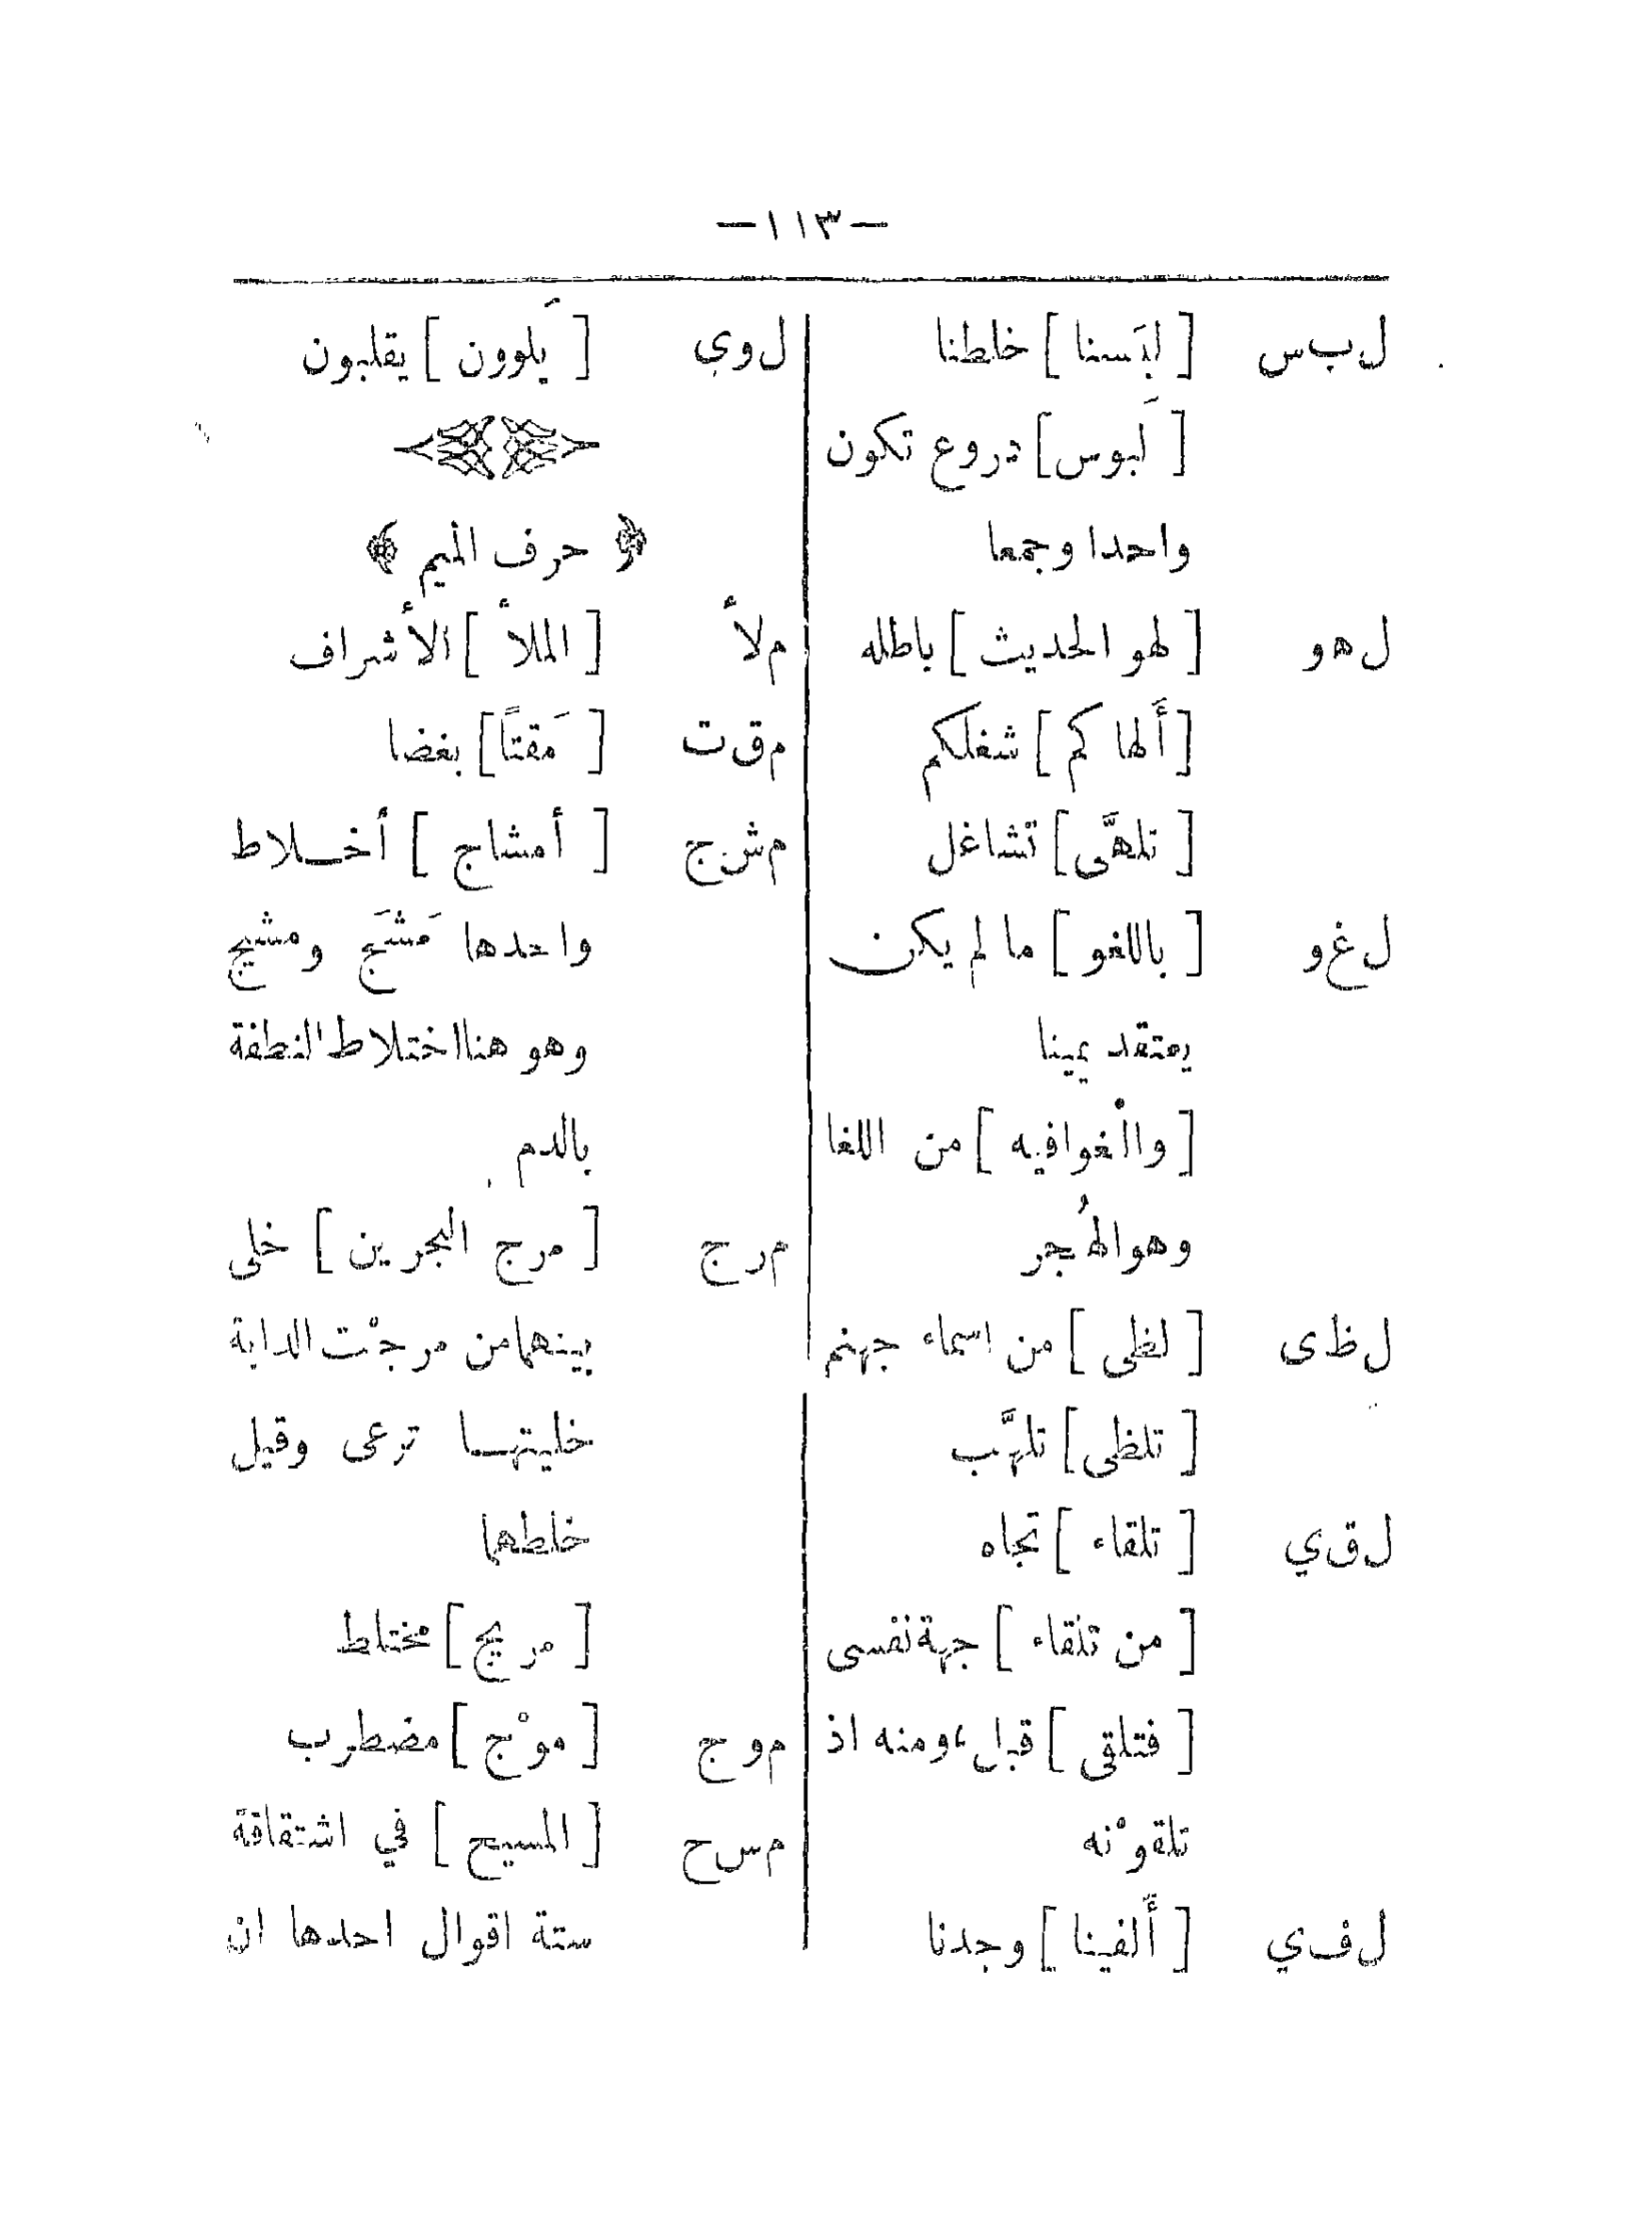 —١١٣—
ل ب س [ لبَسنا ] خلطنا
[ لَبوس ] دروع تكون
واحدا وجمعا
ل ه و [ لهو الحديث ] باطله
[ أَلها كم ] شغلكم
[ تلهَّى ] تشاغل
ل غ و [ باللغو ] ما لم يكن
يعتقد يمينا
[ والْغوافيه ] من اللغا
وهو الهُجر
ل ظ ى [ لظى ] من اسماء جهنم
[ تلظى ] تلهَّب
ل ق ي [ تلقاء ] تجاه
[ من تلقاء ] جهة نفسى
[ فتلقى ] قبل، ومنه اذ
تلقوْنه
ل ف ي [ أَلفينا ] وجدنا
ل و ي [ يَلوون ] يقلبون
﴿ حرف الميم ﴾
م ل أ [ الملأ ] الأشراف
م ق ت [ مَقتاً ] بغضا
م ش ج [ أمشاج ] أخــلاط
واحدها مَشَج ومشيج
وهو هنا اختلاط النطفة
بالدم
م ر ج [ مرج البحرين ] خلى
بينهما من مرجْت الدابة
خليتهــا ترعى وقيل
خلطهما
[ مريج ] مختلط
م و ج [ موْج ] مضطرب
م س ح [ المسيح ] في اشتقاقة
ستة اقوال احدها ان